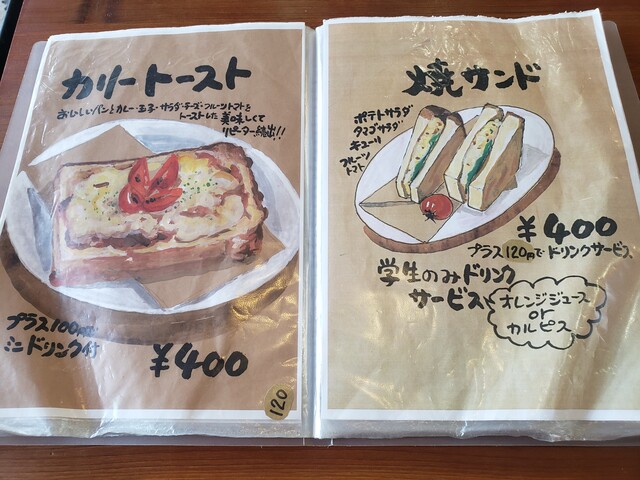 カリートースト
おいしいパンとカレー・玉子・サラダ・チーズ・フルーツトマトを
トーストした美味しくて
リピーター続出!!
プラス100円で
ミニドリンク付
¥400
120
焼サンド
ポテトサラダ
タマゴサラダ
キューリ
フルーツ
トマト
¥400
プラス120円でドリンクサービス
学生のみドリンク
サービス
オレンジジュース
or
カルピス